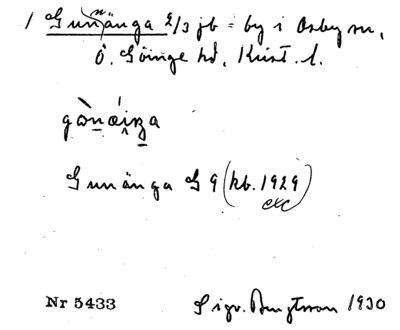 / Gunnänga 2/3 jb = by i Osby sn,
Ö. Göinge hd, Krist. l.
Gunänga G 9 (kb. 1929)
exc
Nr 5433 Sigv. Bengtsson 1930